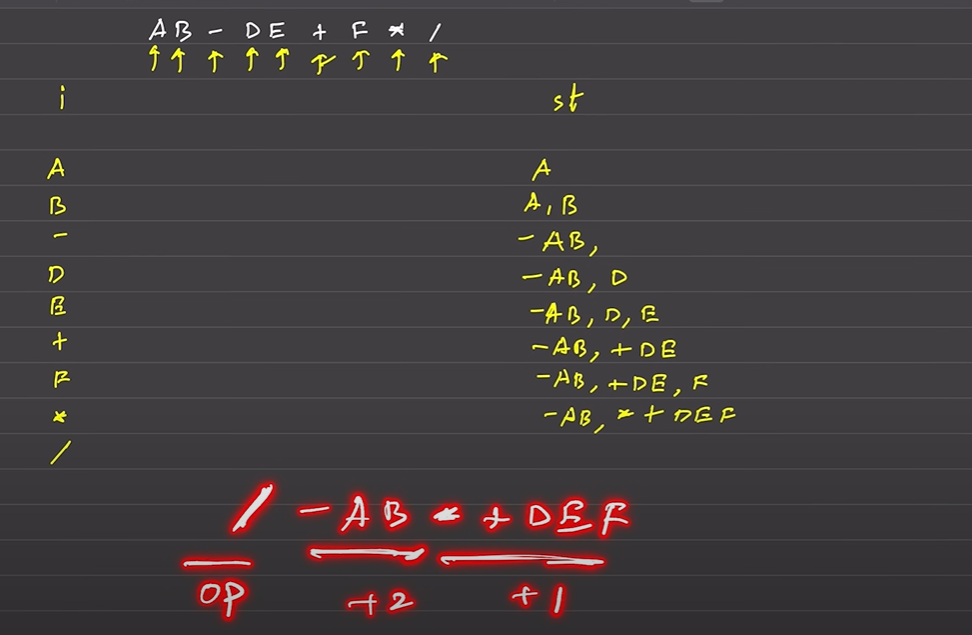 AB - DE + F * /
i st
A A
B A, B
- - AB,
D - AB, D
E - AB, D, E
+ - AB, + DE
F - AB, + DE, F
* - AB, * + DEF
/
/ - AB * + DEF
OP +2 +1